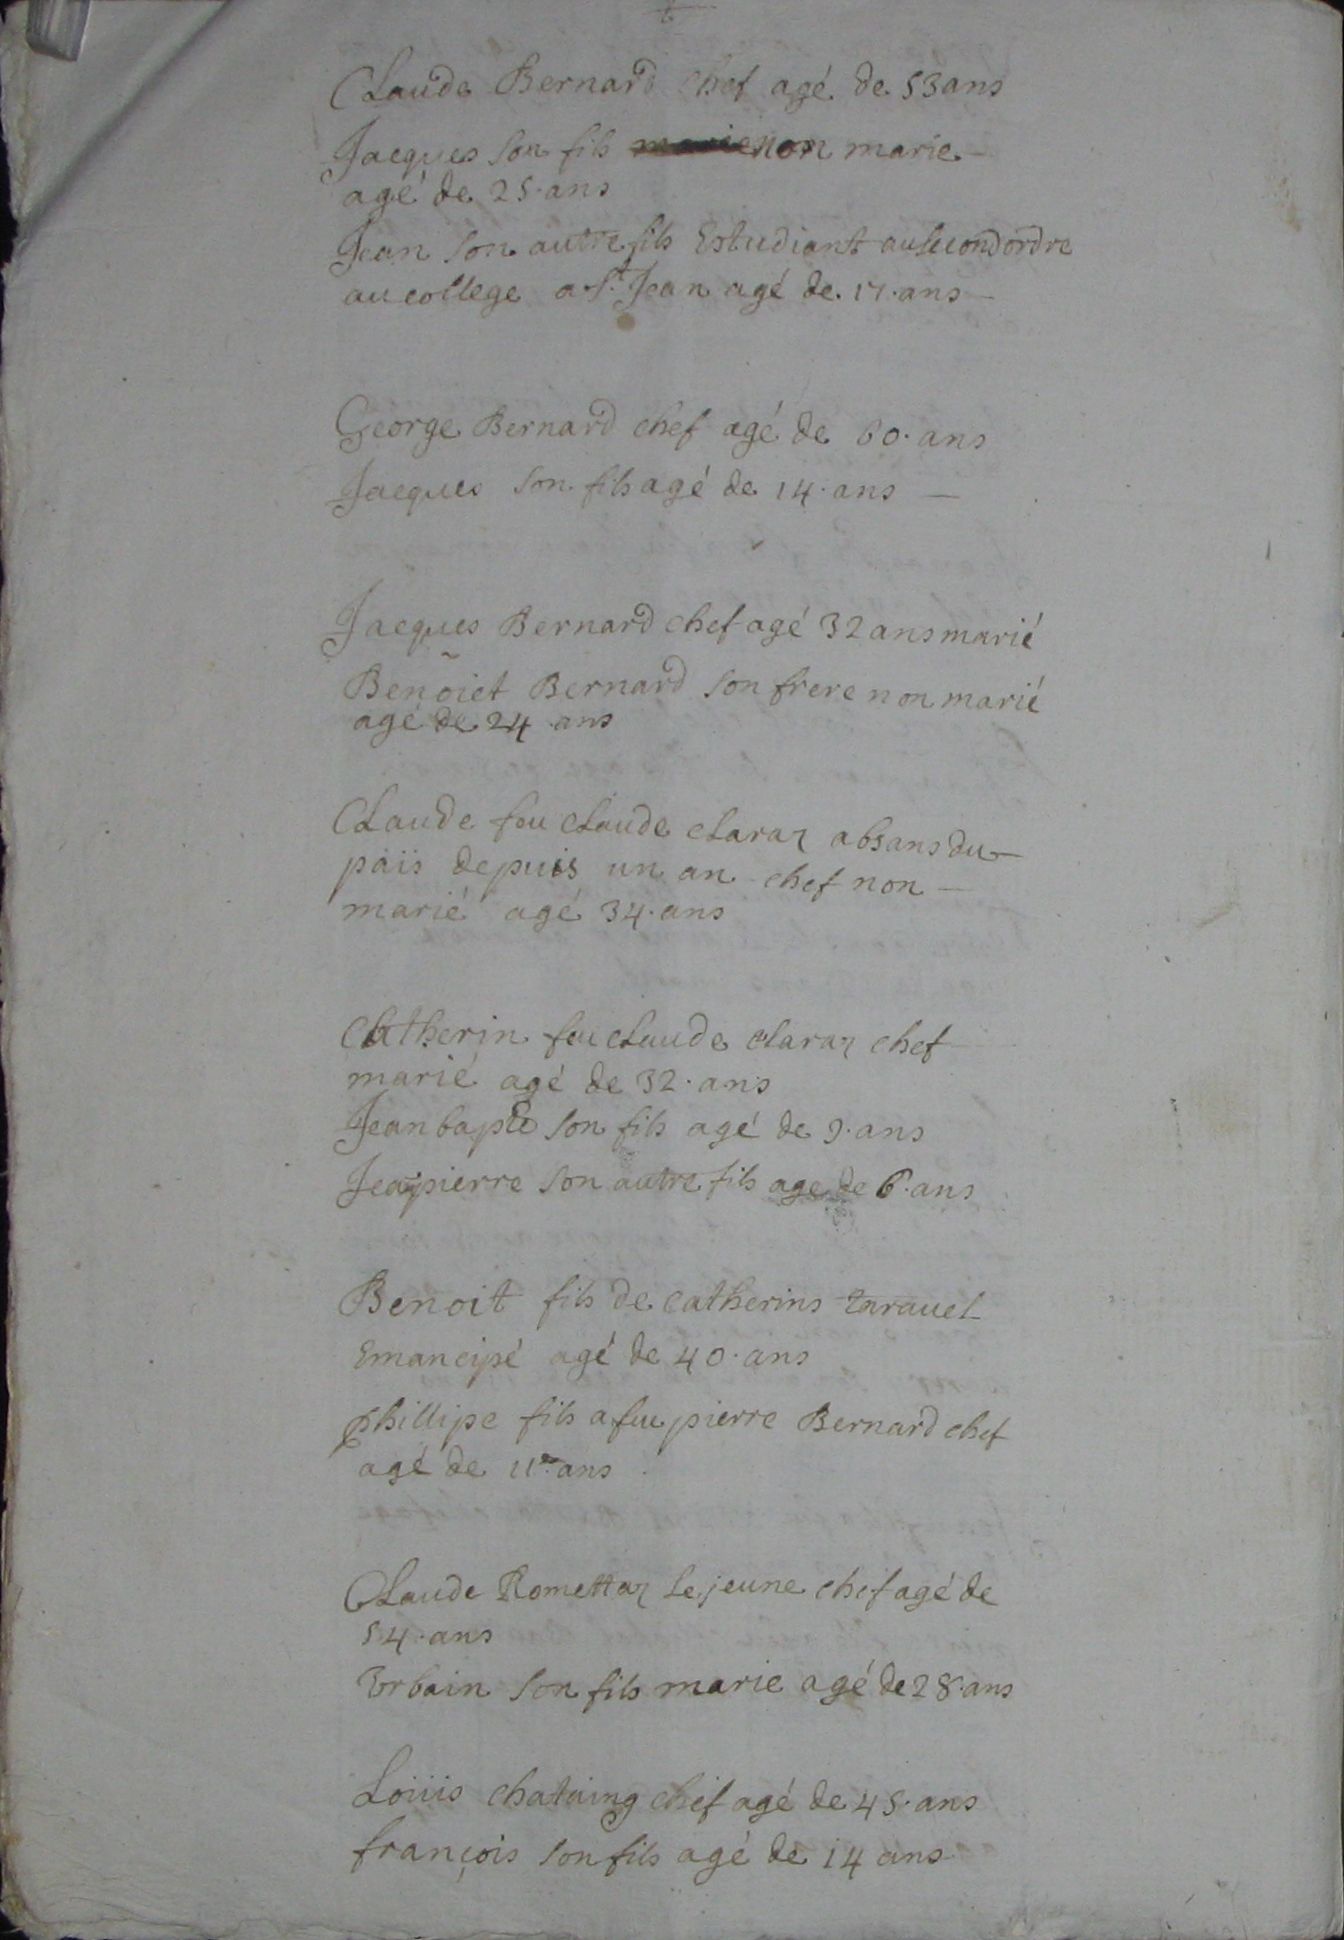 Claude Bernard chef agé de 53 ans
Jacques son fils non marie
agé de 25 ans
Jean son autre fils Estudiant au second ordre
au college a St Jean agé de 17 ans
George Bernard chef agé de 60 ans
Jacques son fils agé de 14 ans
Jacques Bernard chef agé 32 ans marié
Benõiet Bernard son frere non marié
agé de 24 ans
Claude feu claude claraz absans du
païs depuis un an chef non
marié agé 34 ans
Catherin feu claude claraz chef
marié agé de 32 ans
Jean bapte son fils agé de 9 ans
Jeapierre son autre fils age de 6 ans
Benoit fils de catherins taravel
Emancipé agé de 40 ans
phillipe fils a feu pierre Bernard chef
agé de ans
Claude Romettaz le jeune chef agé de
54 ans
Vrbain son fils marie agé de 28 ans
Loüis chataing chef agé de 45 ans
françois son fils agé de 14 ans